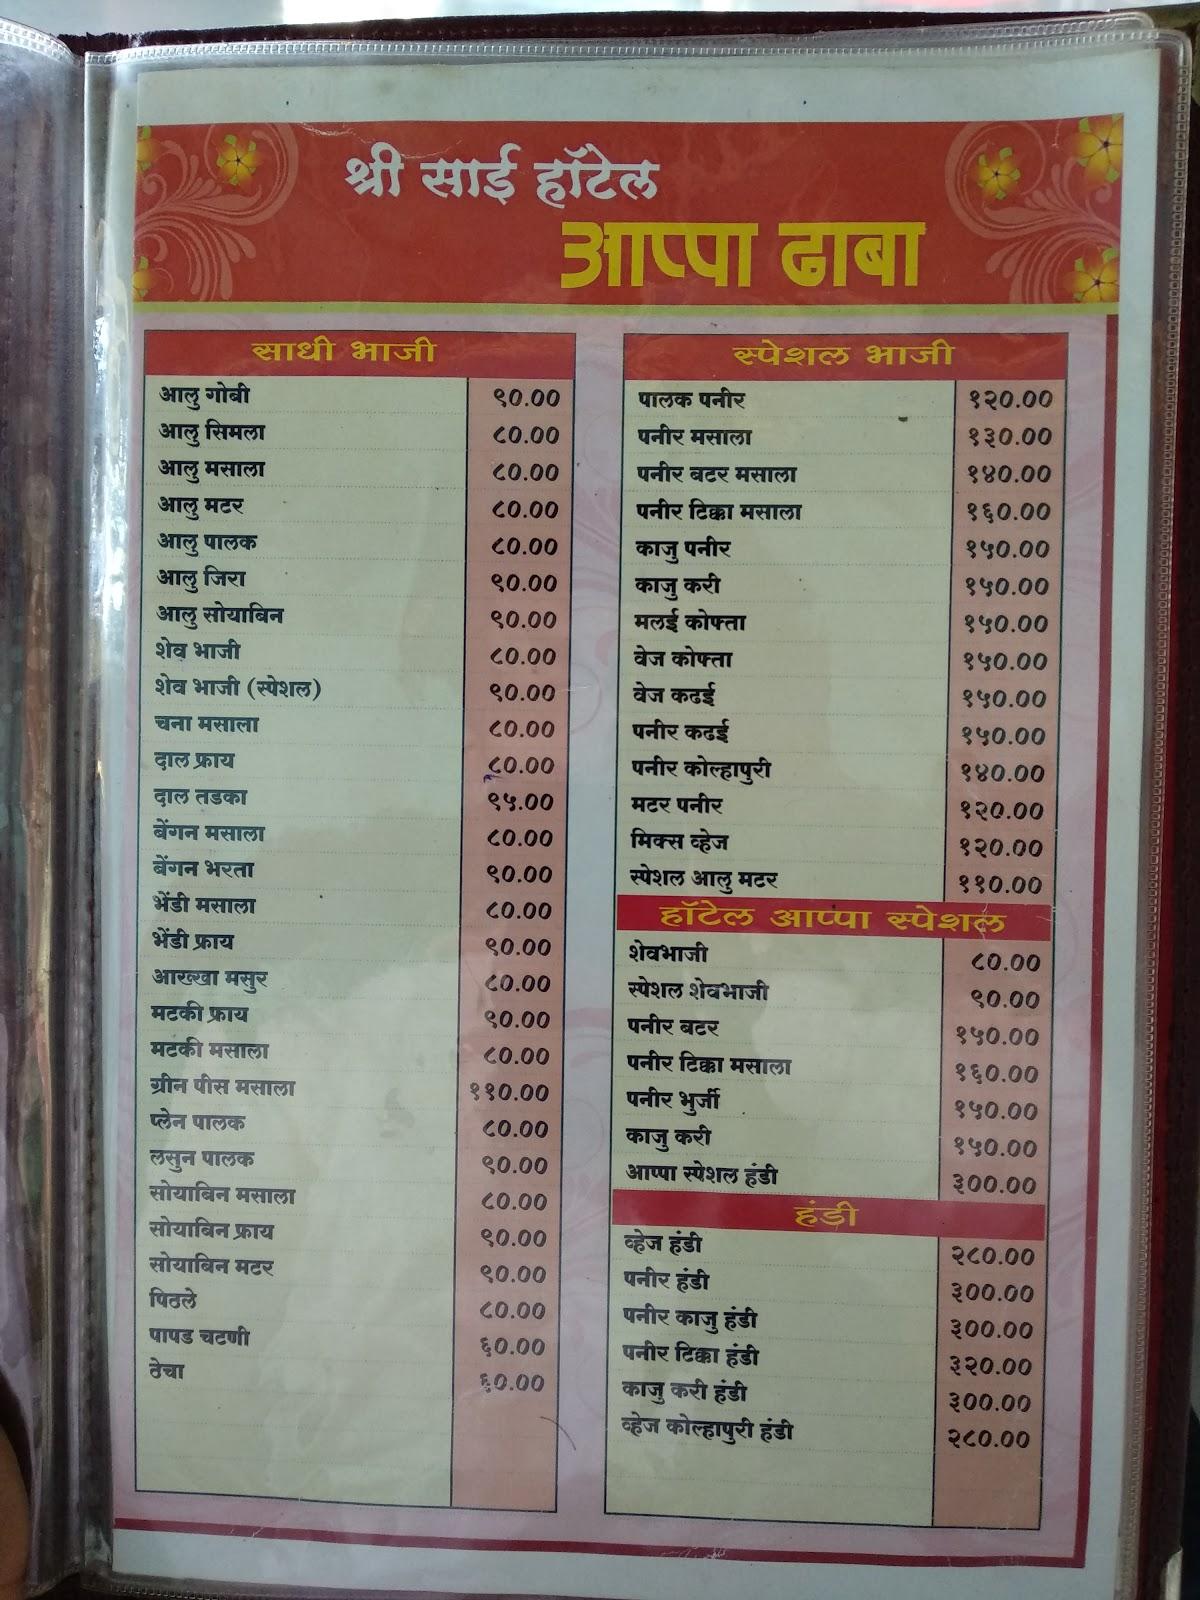 श्री साई हॉटेल
आप्पा ढाबा
साधी भाजी
आलु गोबी ९०.००
आलु सिमला ८०.००
आलु मसाला ८०.००
आलु मटर ८०.००
आलु पालक ८०.००
आलु जिरा ९०.००
आलु सोयाबिन ९०.००
शेव भाजी ८०.००
शेव भाजी (स्पेशल) ९०.००
चना मसाला ८०.००
दाल फ्राय ८०.००
दाल तडका ९५.००
बेंगन मसाला ८०.००
बेंगन भरता ९०.००
भेंडी मसाला ८०.००
भेंडी फ्राय ९०.००
आख्खा मसुर ८०.००
मटकी फ्राय ९०.००
मटकी मसाला ८०.००
ग्रीन पीस मसाला ११०.००
प्लेन पालक ८०.००
लसुन पालक ९०.००
सोयाबिन मसाला ८०.००
सोयाबिन फ्राय ९०.००
सोयाबिन मटर ९०.००
पिठले ८०.००
पापड चटणी ६०.००
ठेचा ६०.००
स्पेशल भाजी
पालक पनीर १२०.००
पनीर मसाला १३०.००
पनीर बटर मसाला १४०.००
पनीर टिक्का मसाला १६०.००
काजु पनीर १५०.००
काजु करी १५०.००
मलई कोफ्ता १५०.००
वेज कोफ्ता १५०.००
वेज कढई १५०.००
पनीर कढई १५०.००
पनीर कोल्हापुरी १४०.००
मटर पनीर १२०.००
मिक्स व्हेज १२०.००
स्पेशल आलु मटर ११०.००
हॉटेल आप्पा स्पेशल
शेवभाजी ८०.००
स्पेशल शेवभाजी ९०.००
पनीर बटर १५०.००
पनीर टिक्का मसाला १६०.००
पनीर भुर्जी १५०.००
काजु करी १५०.००
आप्पा स्पेशल हंडी ३००.००
हंडी
व्हेज हंडी २८०.००
पनीर हंडी ३००.००
पनीर काजु हंडी ३००.००
पनीर टिक्का हंडी ३२०.००
काजु करी हंडी ३००.००
व्हेज कोल्हापुरी हंडी २८०.००